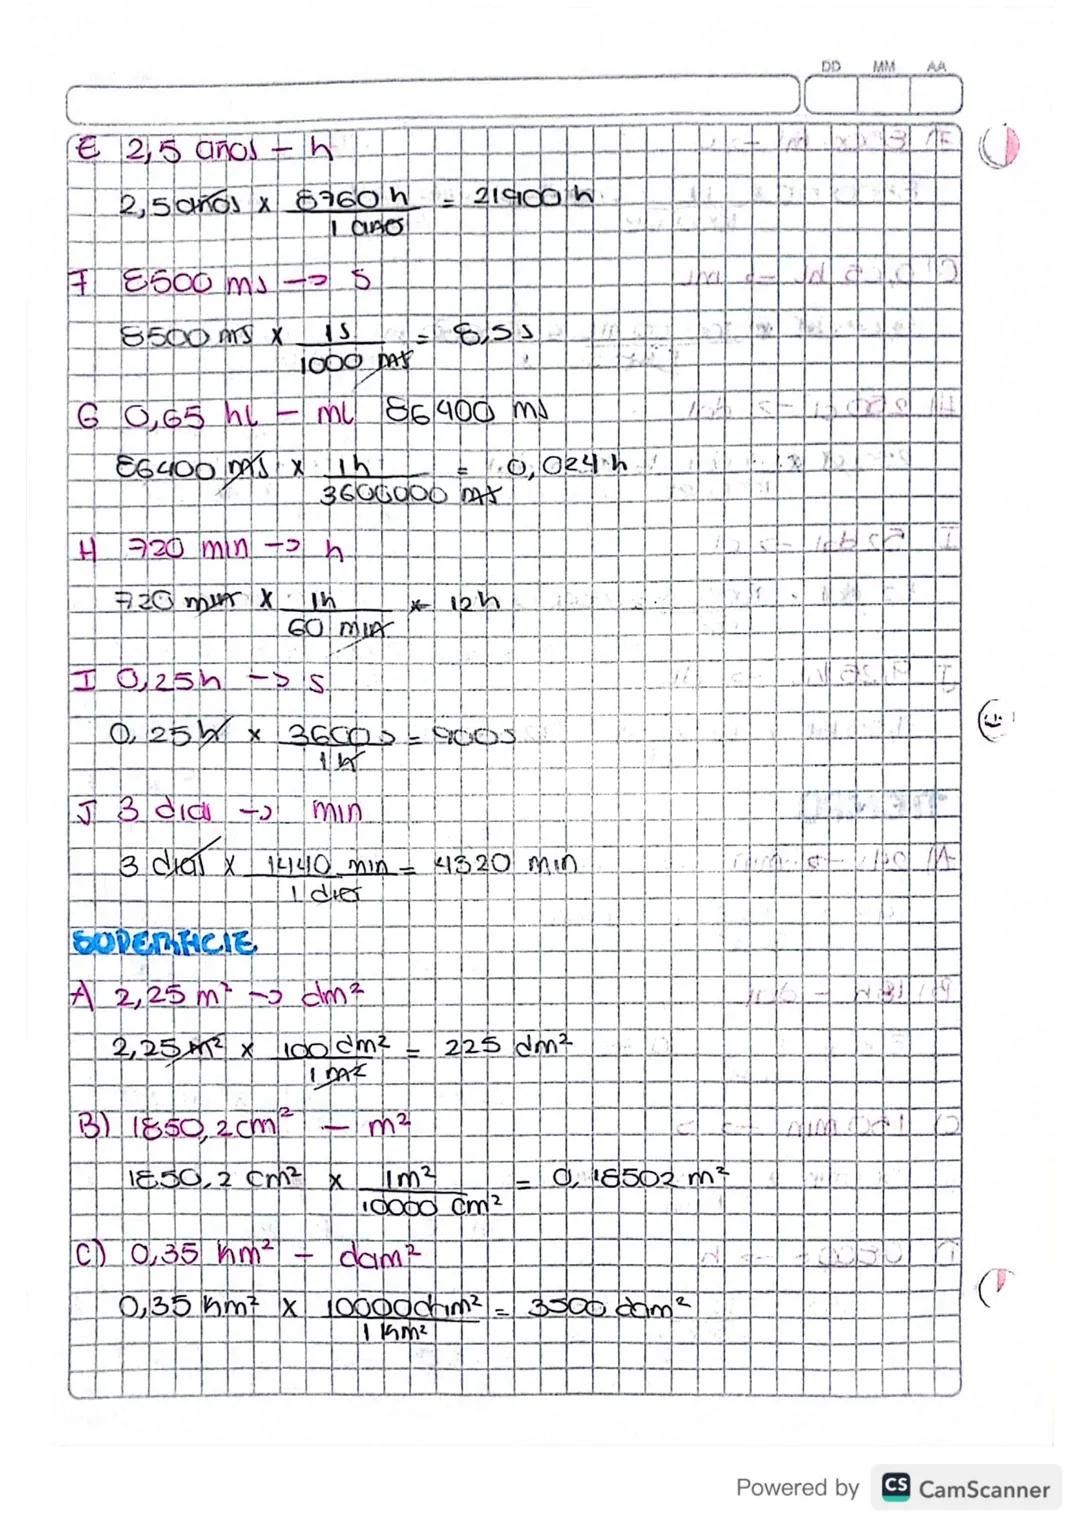 DD MM AA
E 2,5 años - h
2,5 años x 8760 h / 1 años = 21900 h
F 8500 ms -> s
8500 ms x 1s / 1000 ms = 8,5 s
G 0,65 hl - ml 86400 ms
86400 ms x 1h / 3600000 ms = 0,024 h
H 720 min -> h
720 min x 1h / 60 min = 12 h
I 0,25h -> s
0,25 h x 3600 s / 1 h = 900 s
J 3 dias -> min
3 dias x 1440 min / 1 dias = 4320 min
SUPERFICIE
A 2,25 m² -> dm²
2,25 m² x 100 dm² / 1 m² = 225 dm²
B) 1850,2 cm² - m²
1850,2 cm² x 1m² / 10000 cm² = 0,18502 m²
C) 0,35 km² - dam²
0,35 km² x 10000 dam² / 1 km² = 3500 dam²
Powered by CS CamScanner